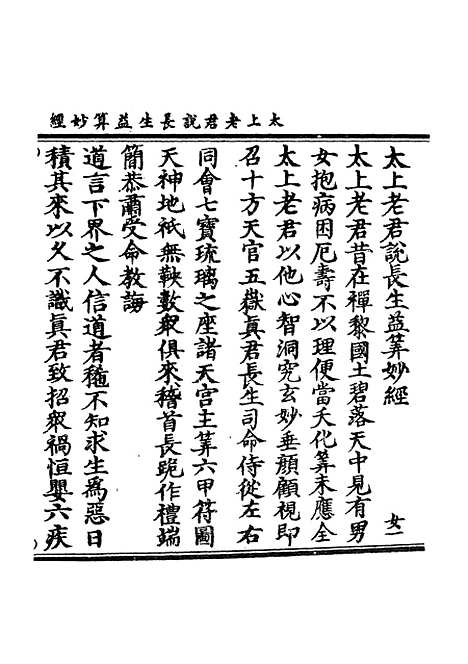 太上老君說長生益算妙經
太上老君說長生益筭妙經　女一
太上老君昔在禪黎國土碧落天中見有男
女抱病困厄壽不以理便當夭化筭未應全
太上老君以他心智洞究玄妙垂顏顧視即
召十方天官五嶽真君長生司命侍從左右
同會七寶琉璃之座諸天宮主筭六甲符圖
天神地祇無鞅數眾俱來稽首長跪作禮端
簡恭肅受命教誨
道言下界之人信道者稀不知求生為惡日
積其來以久不識真君致招眾禍恒嬰六疾